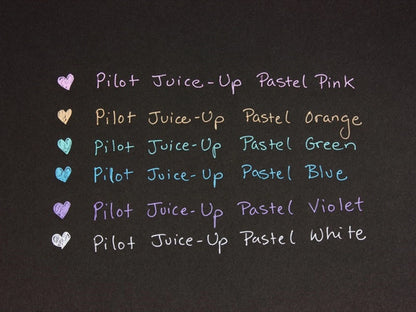 Pilot Juice-Up Pastel Pink
Pilot Juice-Up Pastel Orange
Pilot Juice-Up Pastel Green
Pilot Juice-Up Pastel Blue
Pilot Juice-Up Pastel Violet
Pilot Juice-Up Pastel White